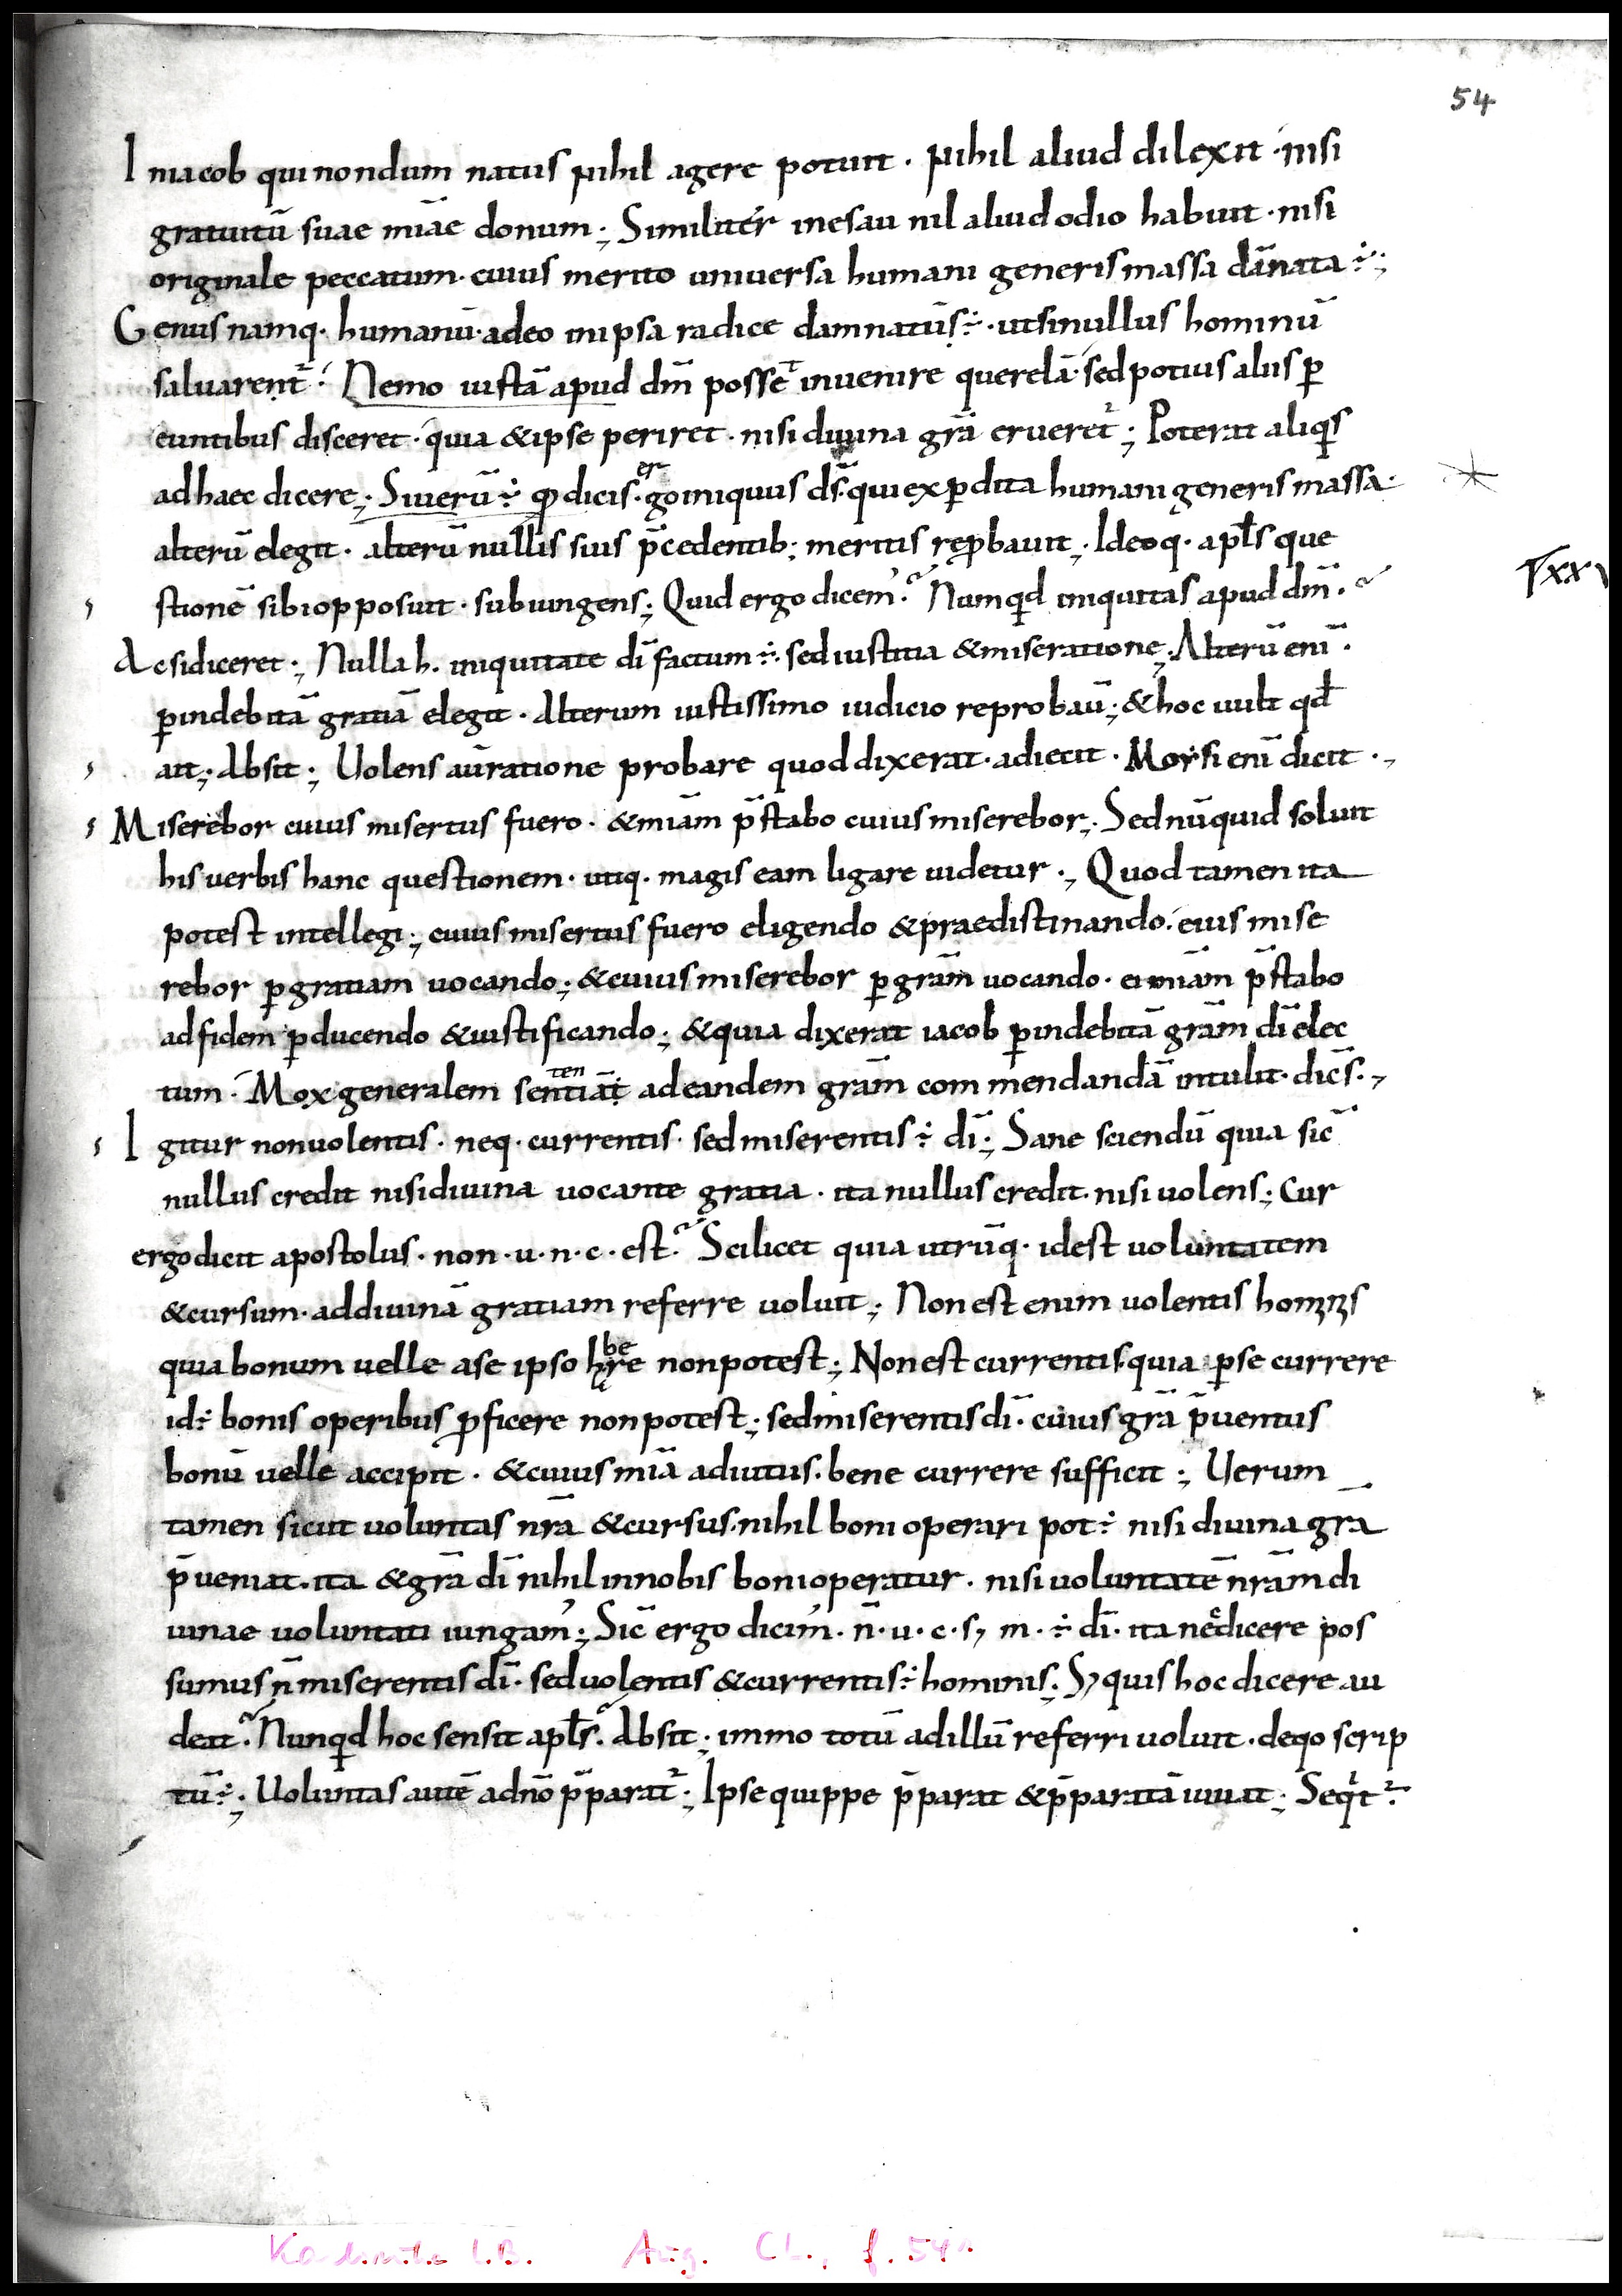 54
In iacob qui nondum natus nihil agere potuit · nihil aliud dilexit · nisi
gratuitū suae miā̄e donum ; Similiter in esau nil aliud odio habuit · nisi
originale peccatum · cuius merito uniuersa humani generis massa dānata ÷ ;
Genus namq · humanū · adeo in ipsa radice damnatū ÷ · ut si nullus hominū
saluarent᷑ · Nemo iustā apud dm̄ posset inuenire querelā · sed potius aliis ꝑ
euntibus disceret · quia & ipse periret · nisi diuina gr̄a erueret᷑ ; Poterat aliqis
ad haec dicere ; Si uerū ÷ qđ dicis · ergo iniquus ds̄ · qui ex ꝑdita humani generis massa ·
alterū elegit · alterū nullis suis p̄cedentib; meritis reꝓbauit ; Ideoq · apłs que
stionē sibi opposuit · subiungens ; Quid ergo dicem᾽ ? Numqid iniquitas apud dm̄ · ?
Ac si diceret ; Nulla h · iniquitate dī factum ÷ · sed iustitia & miseratione ; Alterū enī ·
ꝑ indebitā gratiā elegit · Alterum iustissimo iudicio reprobaū ; & hoc uult qđ
ait ; Absit ; Uolens aū ratione probare quod dixerat · adiecit · Moysi enī dicit · ,
Miserebor cuius misertus fuero · & miām p̄stabo cuius miserebor ; Sed nūquid soluit
his uerbis hanc questionem · utiq · magis eam ligare uidetur · , Quod tamen ita
potest intellegi ; cuius misertus fuero eligendo & praedistinando · eius mise
rebor ꝑ gratiam uocando ; & cuius miserebor ꝑ grām uocando · ei miām p̄stabo
ad fidem ꝑducendo & iustificando ; & quia dixerat iacob ꝑ indebitā grām dī elec
tum · Mox generalem sententiā ad eandem grām commendandā intulit · dic̄s · ,
Igitur non uolentis · neq · currentis · sed miserentis ÷ dī ; Sane sciendū quia sic̄
nullus credit nisi diuina uocante gratia · ita nullus credit · nisi uolens ; Cur
ergo dicit apostolus · non · u · n · c · est ? Scilicet quia utrūq · id est uoluntatem
& cursum · ad diuinā gratiam referre uoluit ; Non est enim uolentis hominis
quia bonum uelle a se ipso habere non potest ; Non est currentis · quia ꝑ se currere
id ÷ bonis operibus ꝓficere non potest ; sed miserentis dī · cuius gr̄a p̄uentus
bonū uelle accipit · & cuius miā adiutus · bene currere sufficit ; Uerum
tamen sicut uoluntas nr̄a & cursus · nihil boni operari pot ÷ nisi diuina gr̄a
p̄ueniat · ita & gr̄a dī nihil in nobis boni operatur · nisi uoluntatē nr̄am di
uinae uoluntati iungam᾽ ; Sic̄ ergo dicim᾽ · n̄ · u · c · s, m · ÷ dī · ita nec dicere pos
sumus n̄ miserentis dī · sed uolentis & currentis ÷ hominis ; S, quis hoc dicere au
deat ? Nunqid hoc sensit apłs ? Absit ; immo totū ad illū referri uoluit · de qo scrip
tū ÷ ; Uoluntas autē a dn̄o p̄parat᷑ ; Ipse quippe p̄parat & p̄paratā iuuat ; Seqit᷑ ·